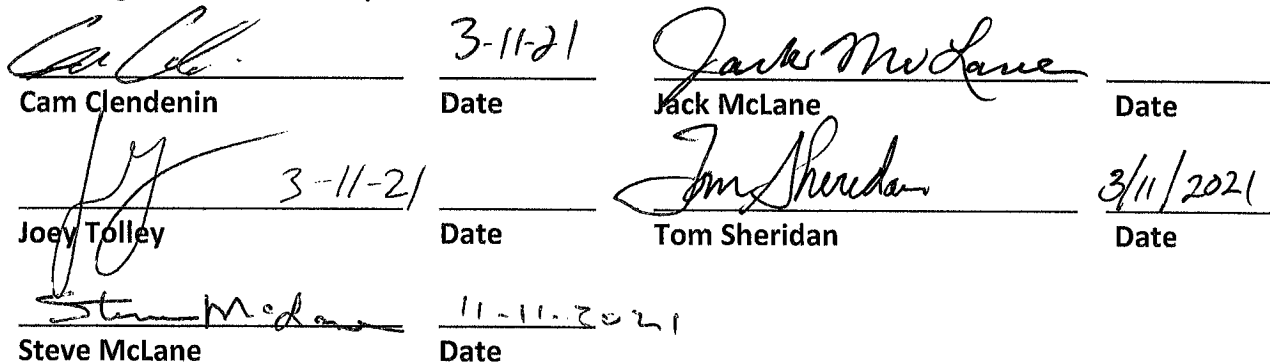 3-11-21 Jack McLane
Cam Clendenin Date Jack McLane Date
3-11-21 Tom Sheridan 3/11/2021
Joey Tolley Date Tom Sheridan Date
Steve McLane 11-11-2021
Steve McLane Date